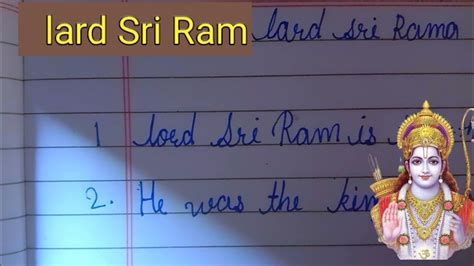 lard Sri Ram
lard sri Rama
1 lord Sri Ram is
2. He was the kin